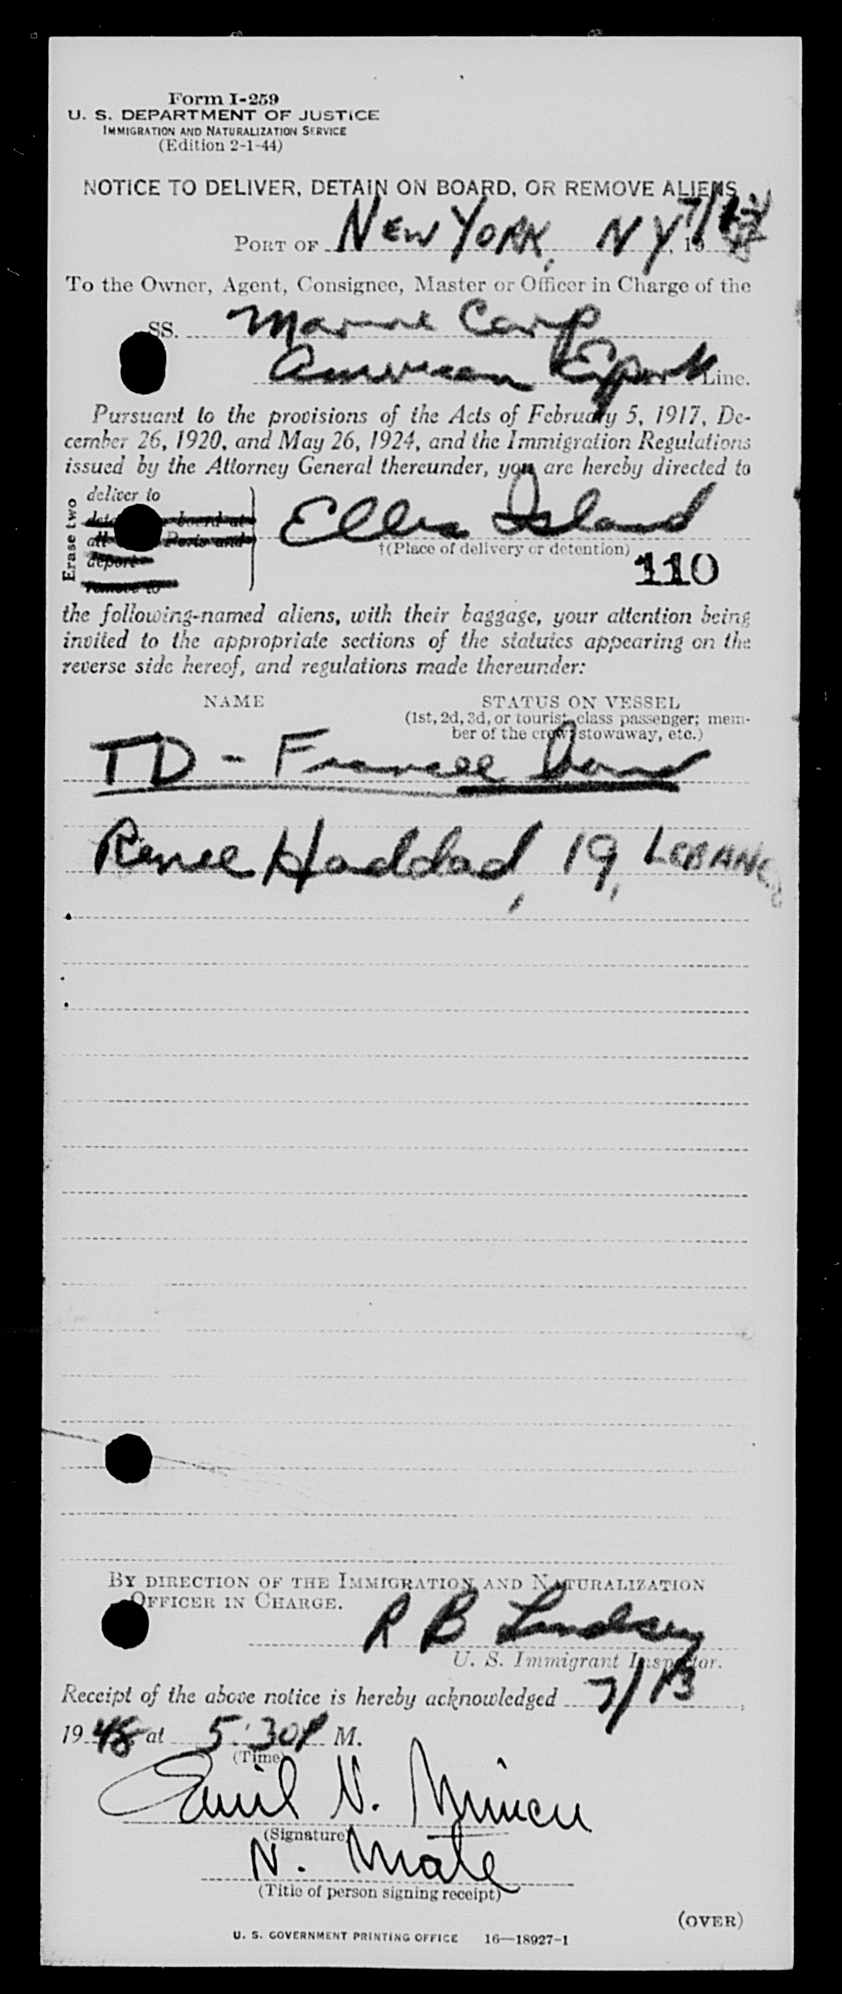 Form I-259
U. S. DEPARTMENT OF JUSTICE
IMMIGRATION AND NATURALIZATION SERVICE
(Edition 2-1-44)
NOTICE TO DELIVER, DETAIN ON BOARD, OR REMOVE ALIENS
PORT OF NEW YORK, NY, 7/13 19
To the Owner, Agent, Consignee, Master or Officer in Charge of the
SS. Marine Carp
American Export Line.
Pursuant to the provisions of the Acts of February 5, 1917, De-
cember 26, 1920, and May 26, 1924, and the Immigration Regulations
issued by the Attorney General thereunder, you are hereby directed to
Erase two
deliver to
board at
all Ports and
deport
remove to
Ellis Island
†(Place of delivery or detention)
110
the following-named aliens, with their baggage, your attention being
invited to the appropriate sections of the statutes appearing on the
reverse side hereof, and regulations made thereunder:
NAME STATUS ON VESSEL
(1st, 2d, 3d, or tourist class passenger; mem-
ber of the crew, stowaway, etc.)
TD -
Renee Haddad, 19, LEBANO
BY DIRECTION OF THE IMMIGRATION AND NATURALIZATION
OFFICER IN CHARGE.
R B Lindsey
U. S. Immigrant Inspector.
Receipt of the above notice is hereby acknowledged 7/13,
1948 at 5:30 P M.
(Time)
Emil N.
(Signature)
N. Mate
(Title of person signing receipt)
(OVER)
U. S. GOVERNMENT PRINTING OFFICE 16—18927-1